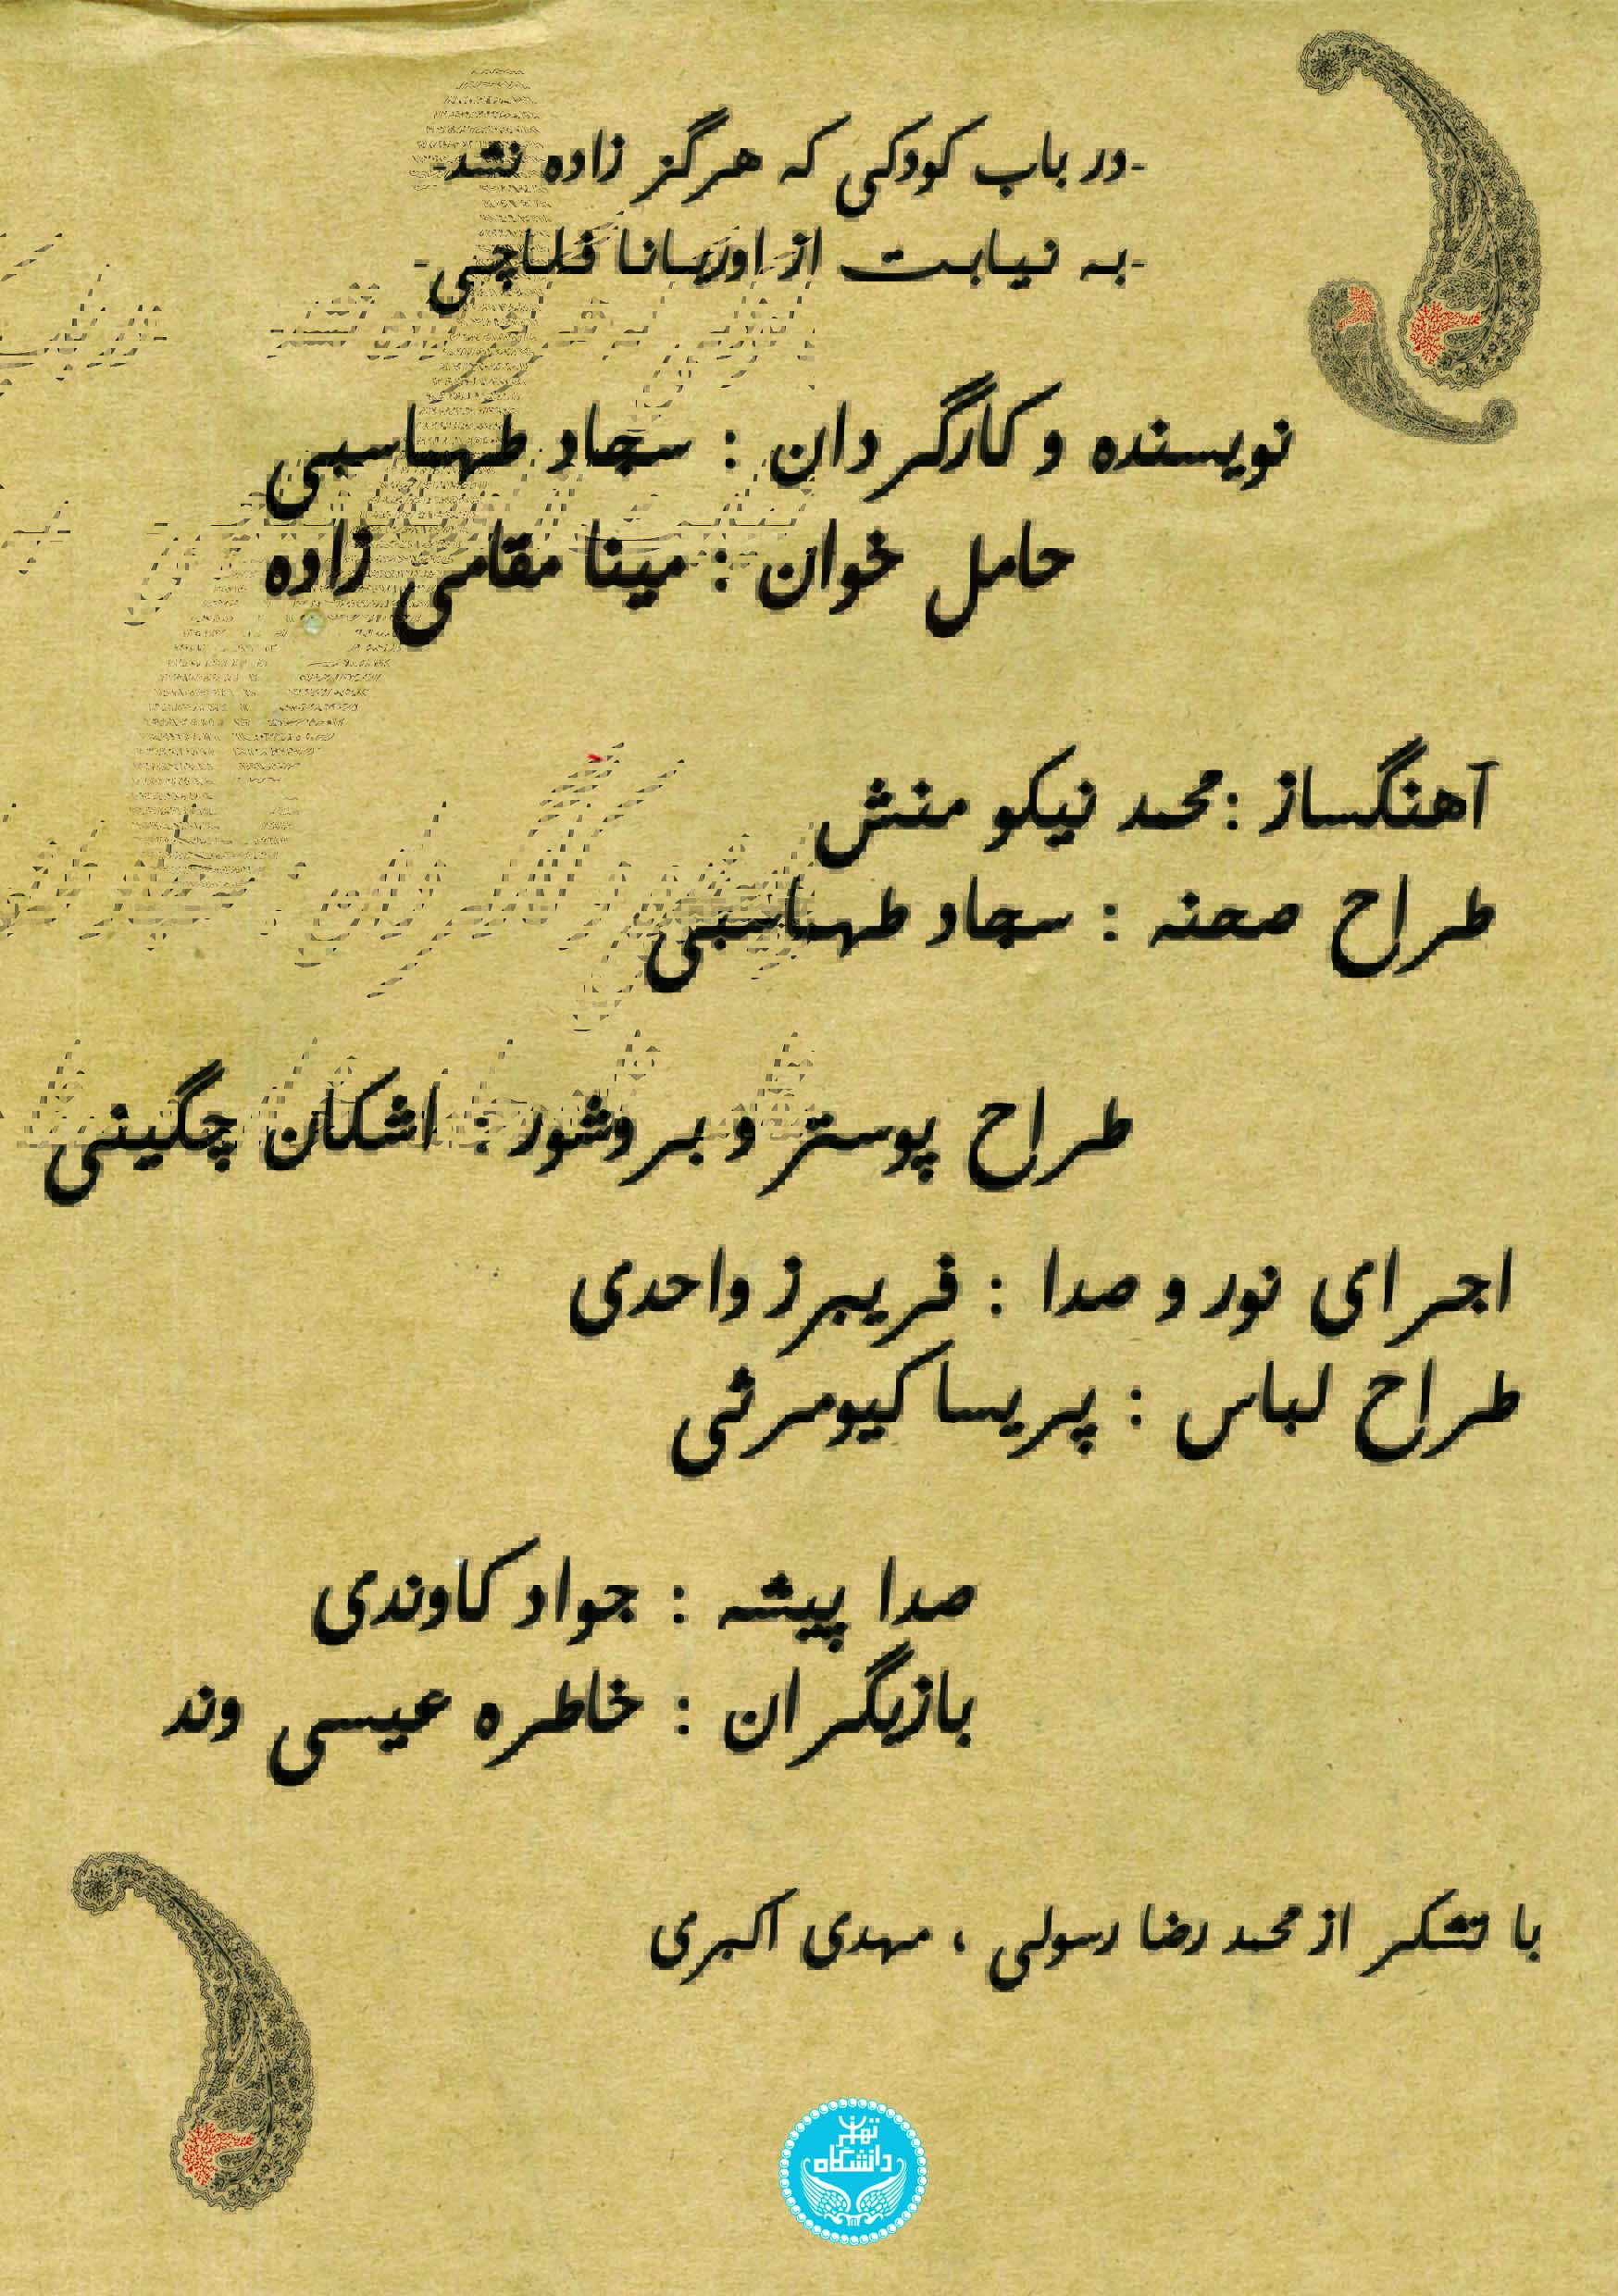 -در باب کودکی که هرگز زاده نشد-
-به نیابت از اوریانا فلاچی-
نویسنده و کارگردان : سجاد طهماسبی
حامل خوان : مینا مقامی زاده
آهنگساز :محمد نیکو منش
طراح صحنه : سجاد طهماسبی
طراح پوستر و بروشور : اشکان چگینی
اجرای نور و صدا : فریبرز واحدی
طراح لباس : پریسا کیومرثی
صدا پیشه : جواد کاوندی
بازیگران : خاطره عیسی وند
با تشکر از محمد رضا رسولی ، مهدی اکبری
دانشگاه تهران